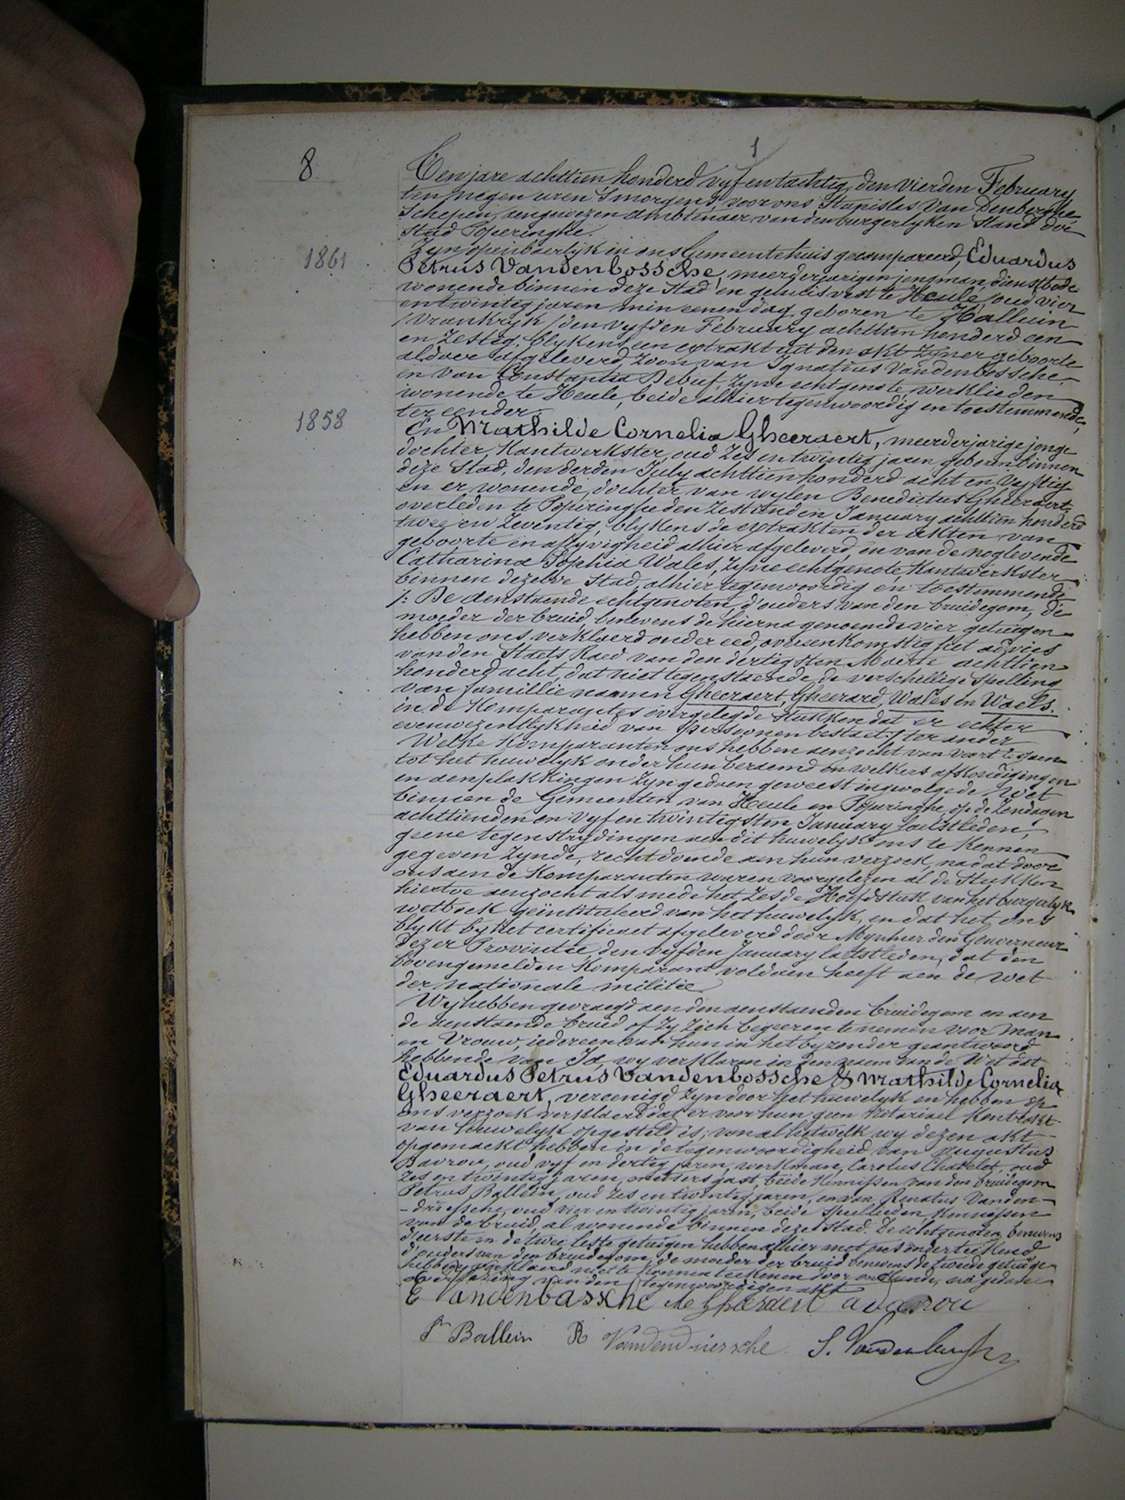 1
8
Ten jare achttien honderd vyf en tachtig, den vierden February
ten negen uren 's morgens, voor ons Stanislas Van Denberghe
Schepen, aengewezen Ambtenaer van den burgerlyken Stand der
Stad Poperinghe.
Zyn openbaerlyk in ons Gemeentehuis gecompareerd, Eduardus
1861
Petrus Vandenbossche, meerderjarigen jongman, dienstbode
wonende binnen deze Stad en gehuisvest te Heule, oud vier
en twintig jaren min eenen dag, geboren te Halluin
/Vrankryk/ den vyfden February achttien honderd een
en zestig, blykens een extrakt uit den akt zyner geboorte
aldaer afgeleverd, zoon van Ignatius Vandenbossche
en van Constantia Debuf, zyne echtgenote, werklieden
wonende te Heule, beide alhier tegenwoordig en toestemmende,
ter eender.
1858
En Mathilde Cornelia Gheeraert, meerderjarige jonge
dochter, Kantwerkster, oud zes en twintig jaren, geboren binnen
deze Stad, den derden July achttien honderd acht en vyftig
en er wonende, dochter van wylen Benedictus Gheeraert,
overleden te Poperinghe den zesden January achttien honderd
twee en zeventig, blykens de extrakten der akten van
geboorte en aflyvigheid alhier afgeleverd, en van de noglevende
Catharina Sophia Wales, zyne echtgenote, Kantwerkster
binnen dezelve Stad, alhier tegenwoordig en toestemmende
/: De aenstaende echtgenoten, d'ouders van den bruidegom, de
moeder der bruid, benevens de hierna genoemde vier getuigen
hebben ons verklaerd onder eed, overeenkomstig het advies
van den Staets Raed van den dertigsten Maerte achttien
honderd acht, dat niet tegenstaende de verschillige spelling
van famillie namen Gheeraert, Gheerard, Wales en Waels.
in de Komparanten overgelegde stukken dat er echter
evenwezentlykheid van persoonen bestaet :/ ter ander
Welke Komparanten ons hebben aenzocht van voort te gaen
tot het huwelyk onder hun beraemd en welkers afkondigingen
en aenplakkingen zyn gedaen geweest ingevolge de Wet
binnen de Gemeenten van Heule en Poperinghe op de Zondagen
achttienden en vyf en twintigsten January laetstleden,
geene tegenstrydingen aen dit huwelyk ons te kennen
gegeven zynde, recht doende aen hun verzoek, na dat door
ons aen de Komparanten waren voorgelezen al de Stukken
hiertoe aenzocht als mede het zesde Hoofdstuk van het burgerlyk
wetboek geïntituleerd van het huwelyk, en dat het ons
blykt by het certificaet afgeleverd door Mynheer den Gouverneur
dezer Provincie den vyfden January laetstleden, dat den
bovengemelden Komparant voldaen heeft aen de wet
der nationale militie
Wy hebben gevraegd aen den aenstaenden bruidegom en aen
de aenstaende bruid of zy zich begeeren te nemen voor man
en Vrouw, iedereen van hun in het byzonder geantwoord
hebbende van Ja, wy verklaren in den naem van de Wet dat
Eduardus Petrus Vandenbossche & Mathilde Cornelia
Gheeraert, vereenigd zyn door het huwelyk en hebben op
ons verzoek verklaerd dat er voor hun geen Notariael Kontrakt
van huwelyk opgesteld is, van al hetwelk wy dezen akt
opgemaekt hebben in de tegenwoordigheid van Augustus
oud vyf en dertig jaren, werkman, Carolus Chatelet, oud
zes en twintig jaren, beide Kennissen van den bruidegom
Petrus Ballein, oud zes en twintig jaren, en van Renatus Vanden-
-driessche, oud vier en twintig jaren, beide Kennissen
van de bruid, al wonende binnen deze Stad. De echtgenoten benevens
d'eerste en de twee leste getuigen hebben alhier met ons onderteekend
d'ouders van den bruidegom, de moeder der bruid benevens de tweede getuige
hebben verklaerd niet te kunnen teekenen voor oorkonde, na gedane
voorlezing van den tegenwoordigen akt
E Vandenbassche Me Gheeraert
Pr Ballein R Vandendriessche S. Vandenberghe